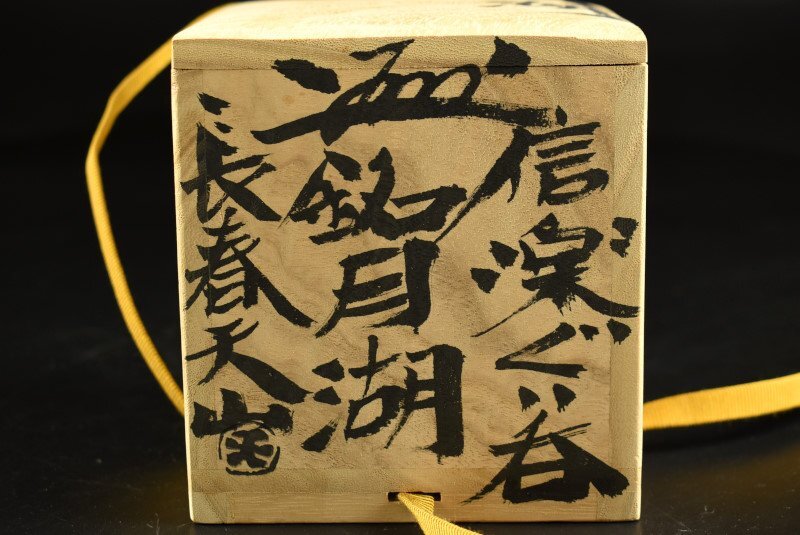 信楽ぐい呑
銘月湖
長春天山